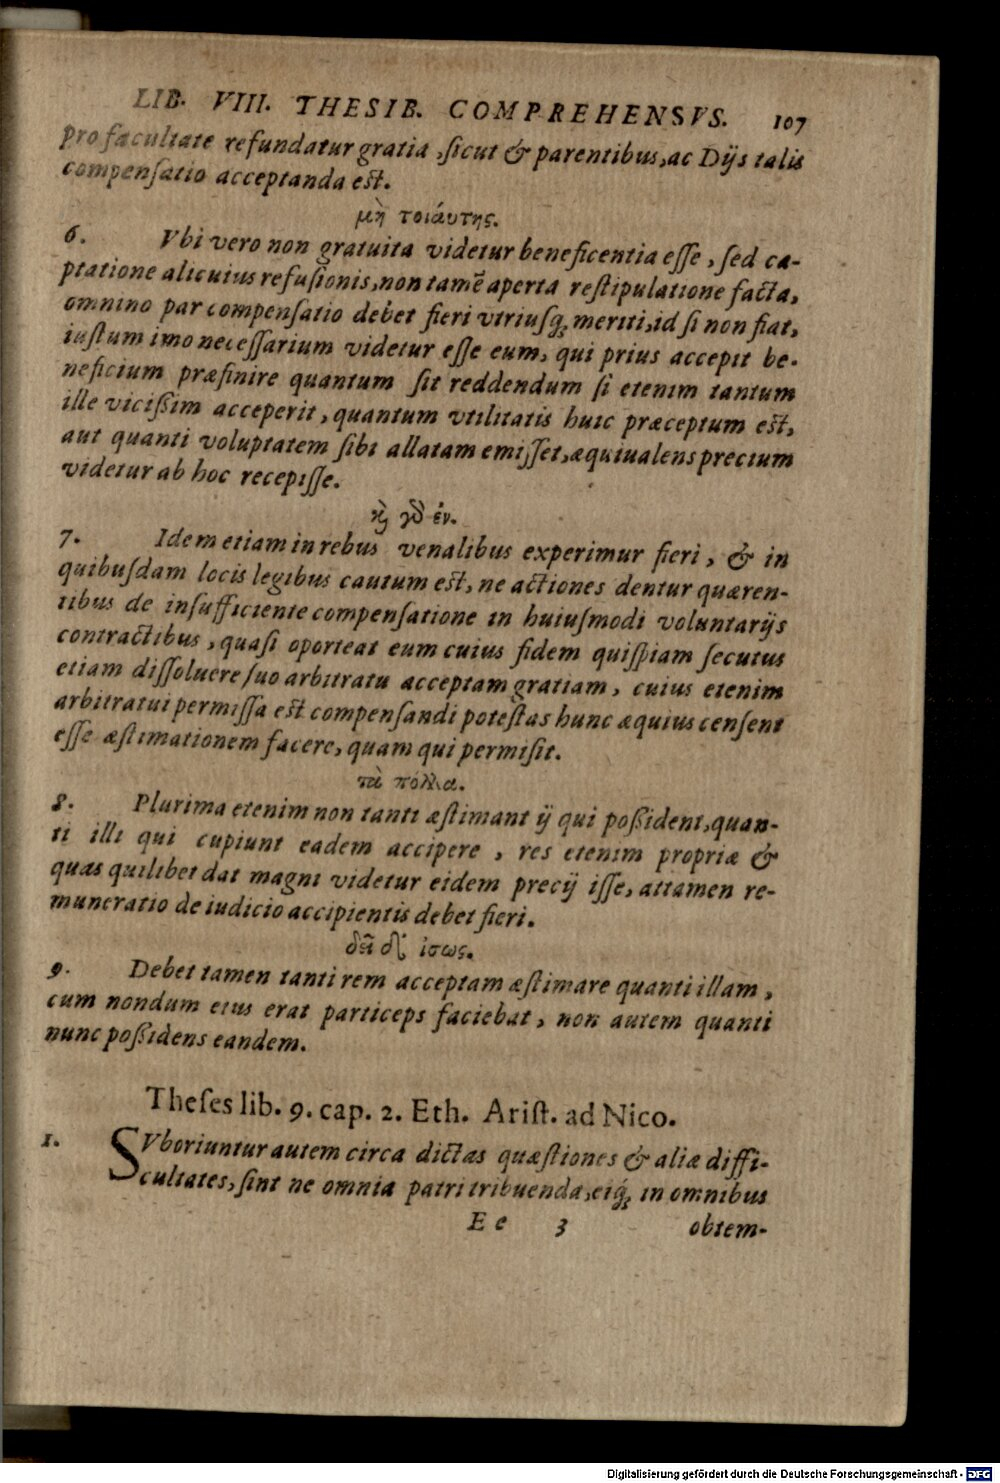 LIB. VIII. THESIB. COMPREHENSVS. 107
pro facultate refundatur gratia, sicut & parentibus, ac Dijs talis
compensatio acceptanda est.
μὴ τοιάυτης.
6. Vbi vero non gratuita videtur beneficentia esse, sed ca-
ptatione alicuius refusionis, non tamē aperta restipulatione facta,
omnino par compensatio debet fieri vtriusq; meriti, id si non fiat,
iustum imo necessarium videtur esse eum, qui prius accepit be-
neficium præfinire quantum sit reddendum si etenim tantum
ille vicißim acceperit, quantum vtilitatis huic præceptum est,
aut quanti voluptatem sibi allatam emisset, æquiualens precium
videtur ab hoc recepisse.
κὶ γδ ἐν.
7. Idem etiam in rebus venalibus experimur fieri, & in
quibusdam locis legibus cautum est, ne actiones dentur quæren-
tibus de insufficiente compensatione in huiusmodi voluntarijs
contractibus, quasi oporteat eum cuius fidem quispiam secutus
etiam dissoluere suo arbitratu acceptam gratiam, cuius etenim
arbitratui permissa est compensandi potestas hunc æquius censent
esse æstimationem facere, quam qui permisit.
τὰ πόλλα.
8. Plurima etenim non tanti æstimant ij qui poßident, quan-
ti illi qui cupiunt eadem accipere, res etenim propriæ &
quas quilibet dat magni videtur eidem precij isse, attamen re-
muneratio de iudicio accipientis debet fieri.
δεῖ δ' ἰσως.
9. Debet tamen tanti rem acceptam æstimare quanti illam,
cum nondum eius erat particeps faciebat, non autem quanti
nunc poßidens eandem.
Theses lib. 9. cap. 2. Eth. Arist. ad Nico.
1. SVboriuntur autem circa dictas quæstiones & aliæ diffi-
cultates, sint ne omnia patri tribuenda, eiq́; in omnibus
E e 3 obtem-
Digitalisierung gefördert durch die Deutsche Forschungsgemeinschaft - DFG